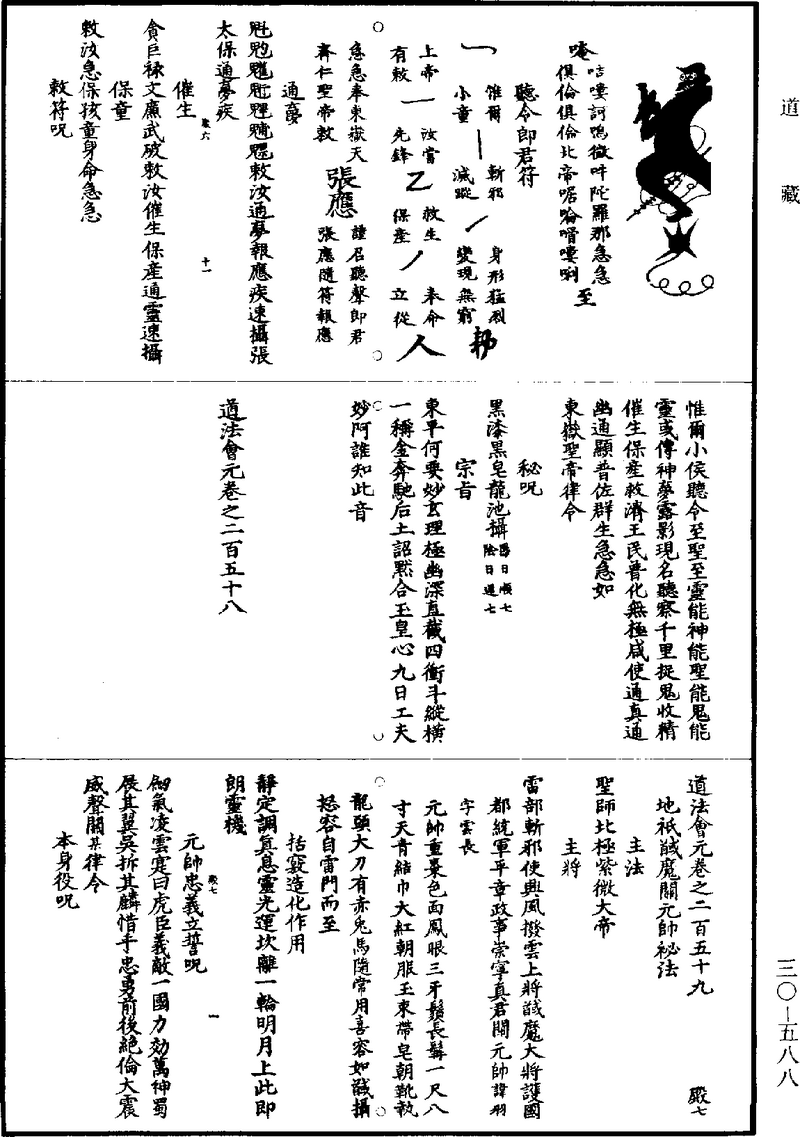 道藏
唵咕嘍訶嗚嶽吽陀羅那急急
俱倫俱倫北帝𠹌喻嘈嘍唎至
聽令郎君符
惟爾小童
斬邪滅蹤
身形猛烈變現無窮
上帝有敕
汝當先鋒
救生保產
奉命立從
急急奉東嶽天齊仁聖帝敕
張應
謹召聽聲郎君張應隨符報應
通夢
敕汝通夢報應疾速攝張
太保通夢疾
催生
貪巨祿文廉武破敕汝催生保產通靈速攝
保童
敕汝急保孩童身命急急
敕符呪
十一
惟爾小侯聽令至聖至靈能神能聖能鬼能
靈或傳神夢露影現名聽察千里捉鬼收精
催生保產救濟王民普化無極咸使通真通
幽通顯普佐群生急急如
東嶽聖帝律令
秘呪
黑漆黑皂龍池攝陽日順七陰日逆七
宗旨
東平何要妙玄理極幽深直截四衝斗縱橫
一稱金奔馳后土詔默合玉皇心九日工夫
妙阿誰知此音
道法會元卷之二百五十八
道法會元卷之二百五十九
殿七
地祇馘魔關元帥祕法
主法
聖師北極紫微大帝
主將
雷部斬邪使興風撥雲上將馘魔大將護國
都統軍平章政事崇寧真君關元帥諱羽
字雲長
元帥重棗色面鳳眼三牙鬚長髯一尺八
寸天青結巾大紅朝服玉束帶皂朝靴執
龍頭大刀有赤兔馬隨常用喜容如馘攝
怒容自雷門而至
括竅造化作用
靜定調氣息靈光運坎離一輪明月上此即
朗靈機
元帥忠義立誓呪
劍氣凌雲寔曰虎臣義敵一國力効萬神蜀
展其翼吳折其麟惜乎忠勇前後絕倫大震
威聲關某律令
本身役呪
殿七
一
三〇—五八八